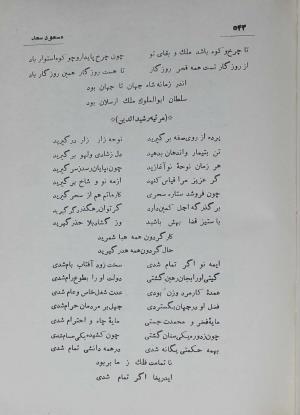 ۵۴۳ مسعود سعد
تا چرخ و کوه باشد ملک و بقای تو چون چرخ پایدار و چو کوه استوار باد
از روزگار تست همه فخر روزگار تا هست روزگار همین روزگار باد
اندر زمانه شاه جهان تا جهان بود
سلطان ابوالملوک ملک ارسلان بود
*(مرثیه رشیدالدین)*
پرده از روی صفه برگیرید نوحه زار زار درگیرید
تن بتیمار و اندهان بدهید دل ز شادی و لهو برگیرید
هر زمان نوحهٔ نو آغازید چون بپایان رسد ز سر گیرید
گر عزیز مرا قیاس کنید از مه نو و شاخ بر گیرید
چون فروشد ستاره سحری کار ماتم هم از سحر گیرید
برگذرگه اجل کمین دارد گر توان رهگذر گیرید
با ستیز قضا بهش باشید وز گشاد بلا حذر گیرید
کار گردون همه هبا شمرید
حال گردون همه هدر گیرید
ایمه نو اگر تمام شدی سخت زود آفتاب بام شدی
گیتی او را بجان رهین گشتی دولت او را بطوع رام شدی
عمدهٔ کارمرد و زن بودی عدت شغل خاص و عام شدی
فضل او در جهان بگستردی جهل بر مردمان حرام شدی
مایهٔ فخر و محمدت جستی مایهٔ جاه و احترام شدی
بهمه حکمتی یگانه شدی در همه دانشی تمام شدی
نا تمامت فلک ز ما بربود
ایدریغا اگر تمام شدی